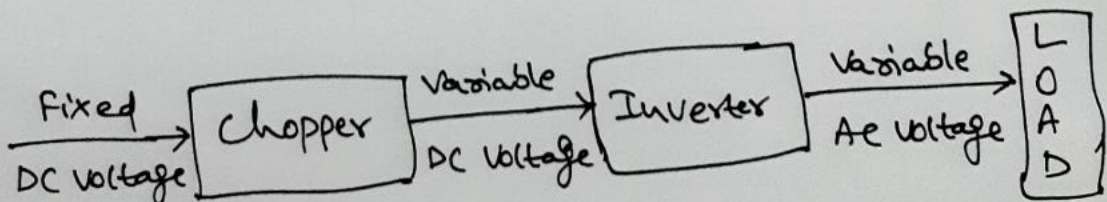 Fixed
DC Voltage
Chopper
Variable
DC Voltage
Inverter
Variable
AC Voltage
L
O
A
D